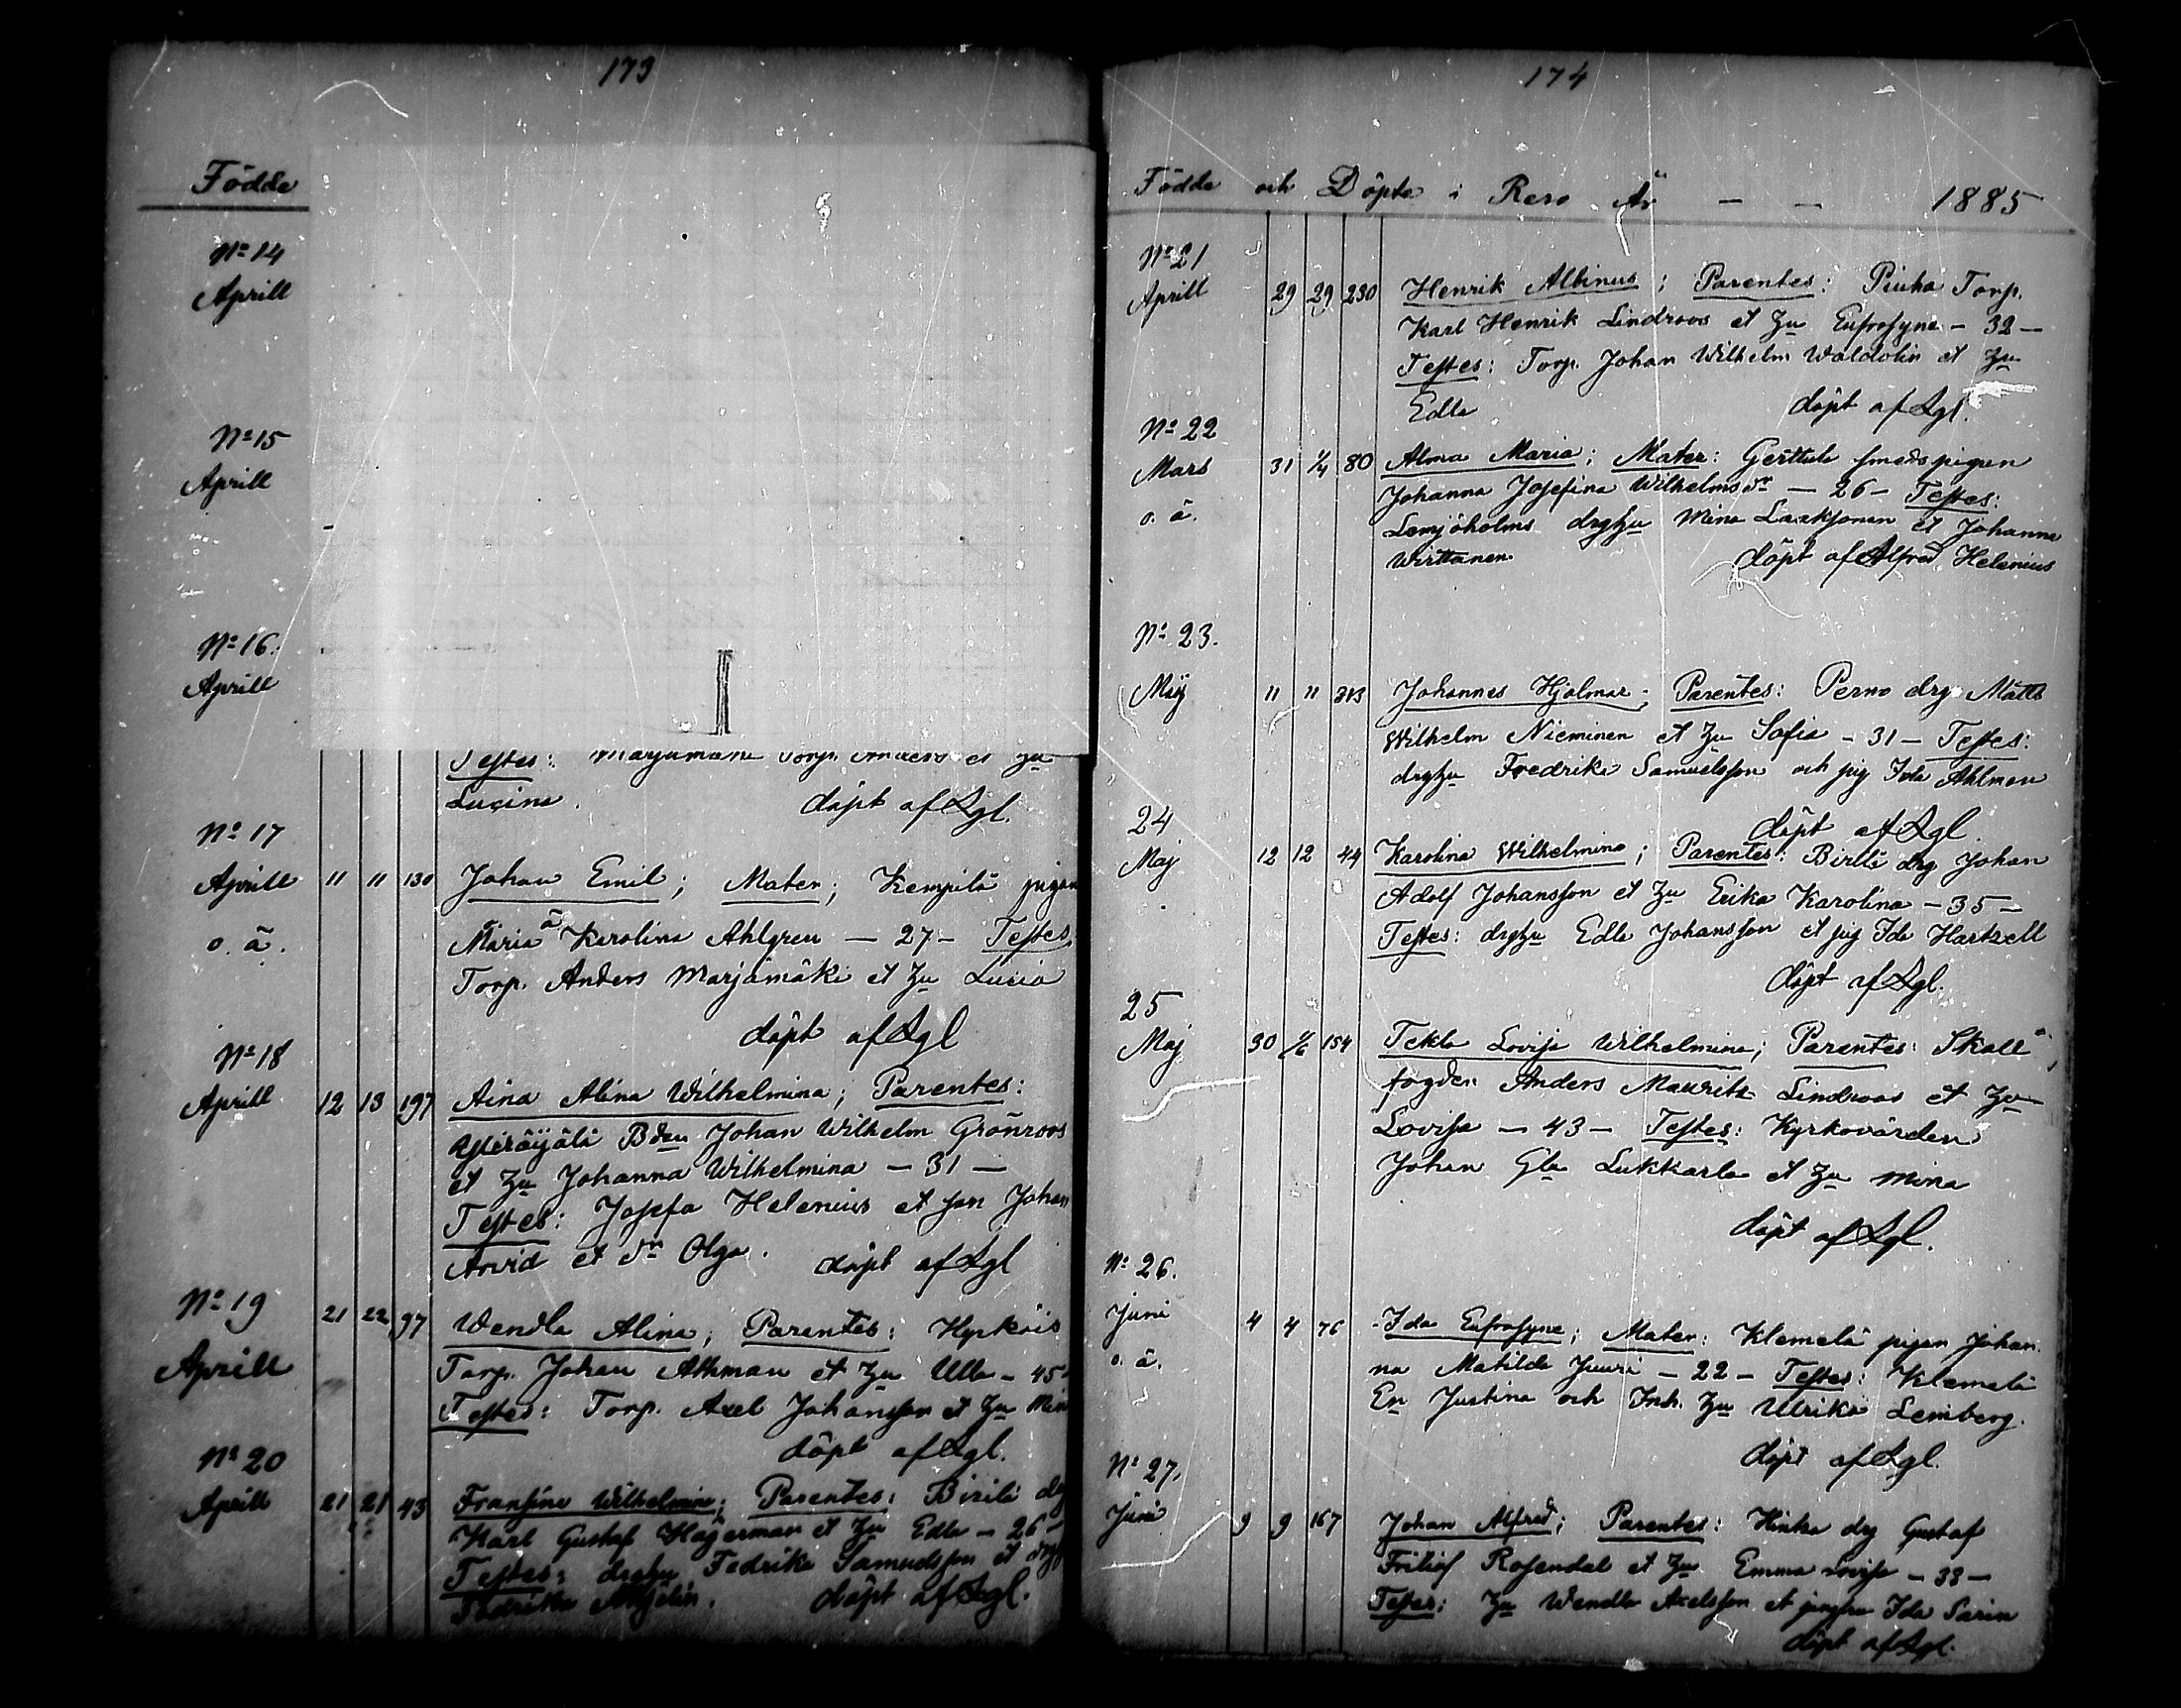 173
Födde
No 14
Aprill
No 15
Aprill
No 16.
Aprill
Testes: Marjamäki Torp. Anders et hu
Lucina. döpt af Lgl.
No 17
Aprill 11 11 130 Johan Emil; Mater; Kempilä pigan
o. ä. Maria Karolina Ahlgren — 27 — Testes.
Torp. Anders Marjamäki et hu Lucia
döpt af Lgl
No 18
Aprill 12 13 197 Aina Alina Wilhelmina; Parentes:
Bdn Johan Wilhelm Grönroos
et hu Johanna Wilhelmina — 31 —
Testes: Josefa Helenius et son Johan
Arvid et dr Olga. döpt af Lgl
No 19
Aprill 21 22 97 Wendla Alina; Parentes: Hyrköis
Torp. Johan Althman et hu Ulla — 45 —
Testes: Torp. Axel Johansson et hu Min
döpt af Lgl.
No 20
Aprill 21 21 43 Fransina Wilhelmina; Parentes: Birilä drg
Karl Gustaf Hagerman et hu Edla — 26 —
Testes: drghu Fedrika Samuelsson et drgh
Fredrika döpt af Lgl.
174
Födde och Döpte i Reso År — — 1885
No 21
Aprill 29 29 230 Henrik Albinus; Parentes: Piuha Torp.
Karl Henrik Lindroos et hu Eufrosyne — 32 —
Testes: Torp. Johan Wilhelm Waldolin et hu
Edla döpt af Lgl.
No 22
Mars 31 1/4 80 Alma Maria; Mater: Gerttula smedspigan
o. ä. Johanna Josefina Wilhelmsdr — 26 — Testes:
Lemsjöholms drghu Mina Laaksonen et Johanna
Wirttanen. döpt af Alfred Helenius
No 23.
Maj 11 11 313 Johannes Hjalmar; Parentes: Perno drg Matts
Wilhelm Nieminen et hu Sofia — 31 — Testes:
drghu Fredrika Samuelsson och pig Ida Ahlman
döpt af Lgl.
24
Maj 12 12 44 Karolina Wilhelmina; Parentes: Birilä drg Johan
Adolf Johansson et hu Erika Karolina — 35 —
Testes: drghu Edla Johansson et pig Ida Hartzell
döpt af Lgl.
25
Maj 30 1/6 154 Tekla Lovisa Wilhelmina; Parentes: Skall
fogden Anders Mauritz Lindroos et hu
Lovisa — 43 — Testes: Kyrkovärden
Johan Gla Lukkarla et hu Mina
döpt af Lgl.
No 26.
Juni 4 4 76 Ida Eufrosyne; Mater: Klemelä pigan Johan
o. ä. na Matilda Juuri — 22 — Testes: Klemelä
En Justina och Inh. hu Ulrika Lemberg.
döpt af Lgl.
No 27.
Juni 9 9 167 Johan Alfred; Parentes: Hinka drg Gustaf
Fritiof Rosendal et hu Emma Lovisa — 33 —
Testes: hu Wendla Axelsson et jungfru Ida Sarin
döpt af Lgl.